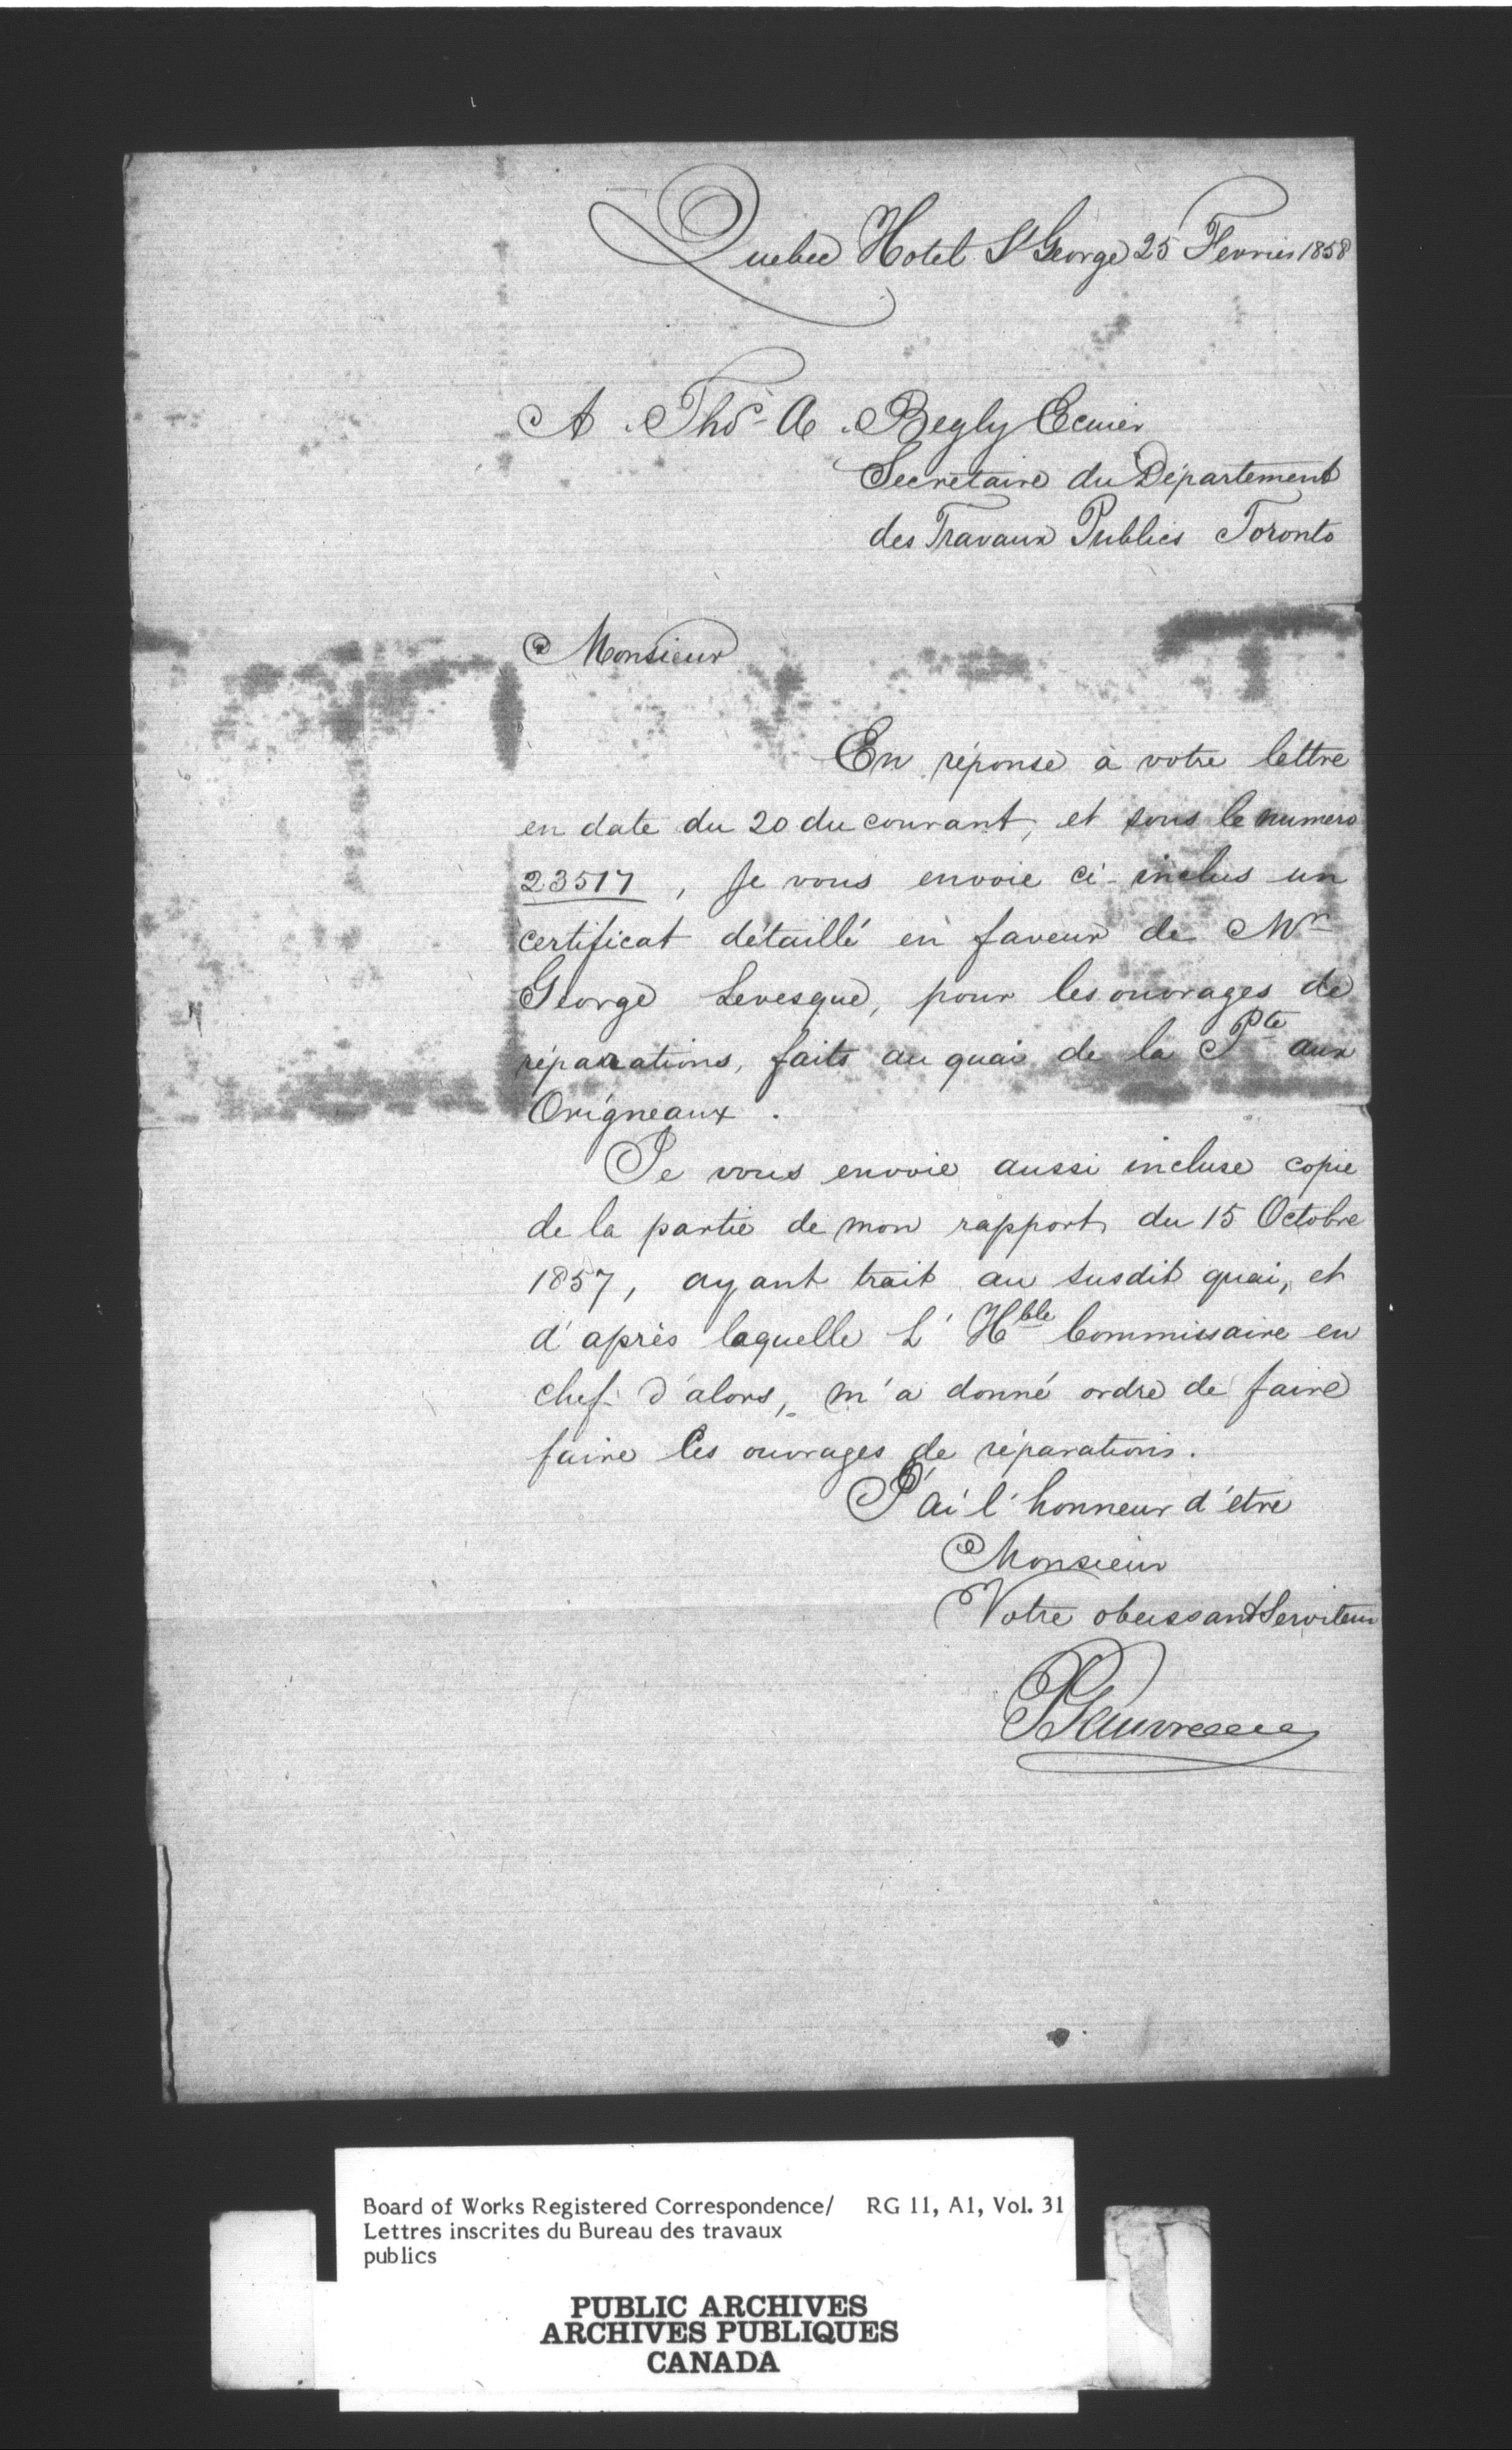 Quebec Hotel St George 25 Fevrier 1858
A. Thos. A. Begly Ecuier
Secretaire du Département
des Travaux Publics Toronto
Monsieur
En réponse à votre lettre
en date du 20 du courant, et sous le numero
23517, Je vous envoie ci-inclus un
certificat détaillé en faveur de Mr
George Levesque, pour les ouvrages de
réparations, faits au quai de la Pte aux
Origneaux.
Je vous envoie aussi incluse copie
de la partie de mon rapport du 15 Octobre
1857, ayant trait au susdit quai, et
d'après laquelle L'Hble Commissaire en
chef d'alors, m'a donné ordre de faire
faire les ouvrages de réparations.
J'ai l'honneur d'etre
Monsieur
Votre obeissant Serviteur
Board of Works Registered Correspondence/ RG 11, A1, Vol. 31
Lettres inscrites du Bureau des travaux
publics
PUBLIC ARCHIVES
ARCHIVES PUBLIQUES
CANADA